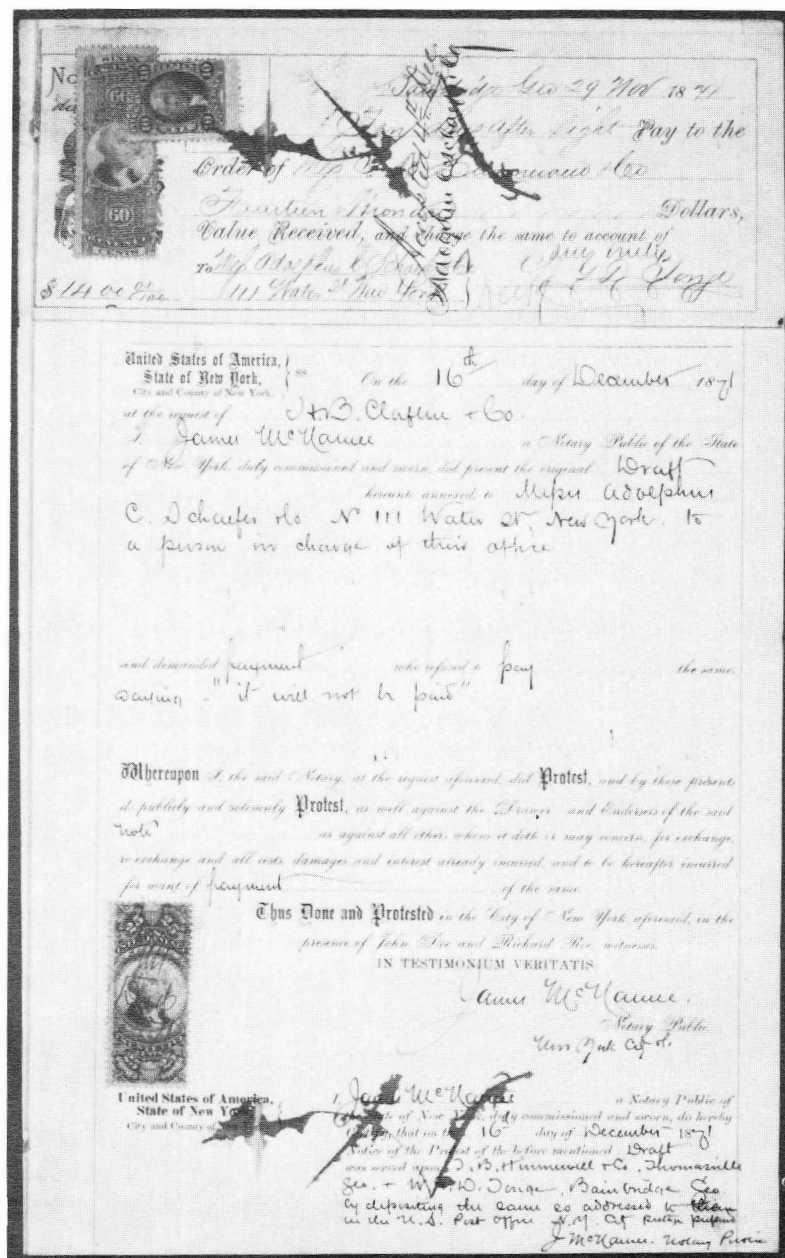 No
Geo 29 Nov 1871
After Sight Pay to the
Order of & Co
Dollars,
Value Received, and charge the same to account of
To Adolphus C Schaefer
$14 00 111 Water St New York
60
60
CENTS
United States of America,
State of New York, } ss
City and County of New York.
On the 16th day of December 1871
at the request of H.B. Claflin & Co.
I, James McNamee a Notary Public of the State
of New York, duly commissioned and sworn, did present the original Draft
hereunto annexed, to Messrs Adolphus
C. Schaefer & Co No 111 Water St. New York. to
a person in charge of their office
and demanded payment who refused to pay the same.
saying - "it will not be paid"
Whereupon I, the said Notary, at the request aforesaid, did Protest, and by these presents
do publicly and solemnly Protest, as well against the Drawer and Endorsers of the said
note as against all others whom it doth or may concern, for exchange,
re-exchange and all costs, damages and interest already incurred, and to be hereafter incurred
for want of payment of the same.
Thus Done and Protested in the City of New York aforesaid, in the
presence of John Doe and Richard Roe, witnesses.
IN TESTIMONIUM VERITATIS
James McNamee.
Notary Public
New York City Co.
United States of America,
State of New York
City and County of New York
I, James McNamee a Notary Public of
the State of New York, duly commissioned and sworn, do hereby
certify, that on the 16th day of December 1871
Notice of the Protest of the before mentioned Draft
was served upon & Co, Thomasville
Geo. + W. D. Bainbridge Geo.
by depositing the same so addressed to them
in the U.S. Post Office N.Y. City postage prepaid
J McNamee. Notary Public